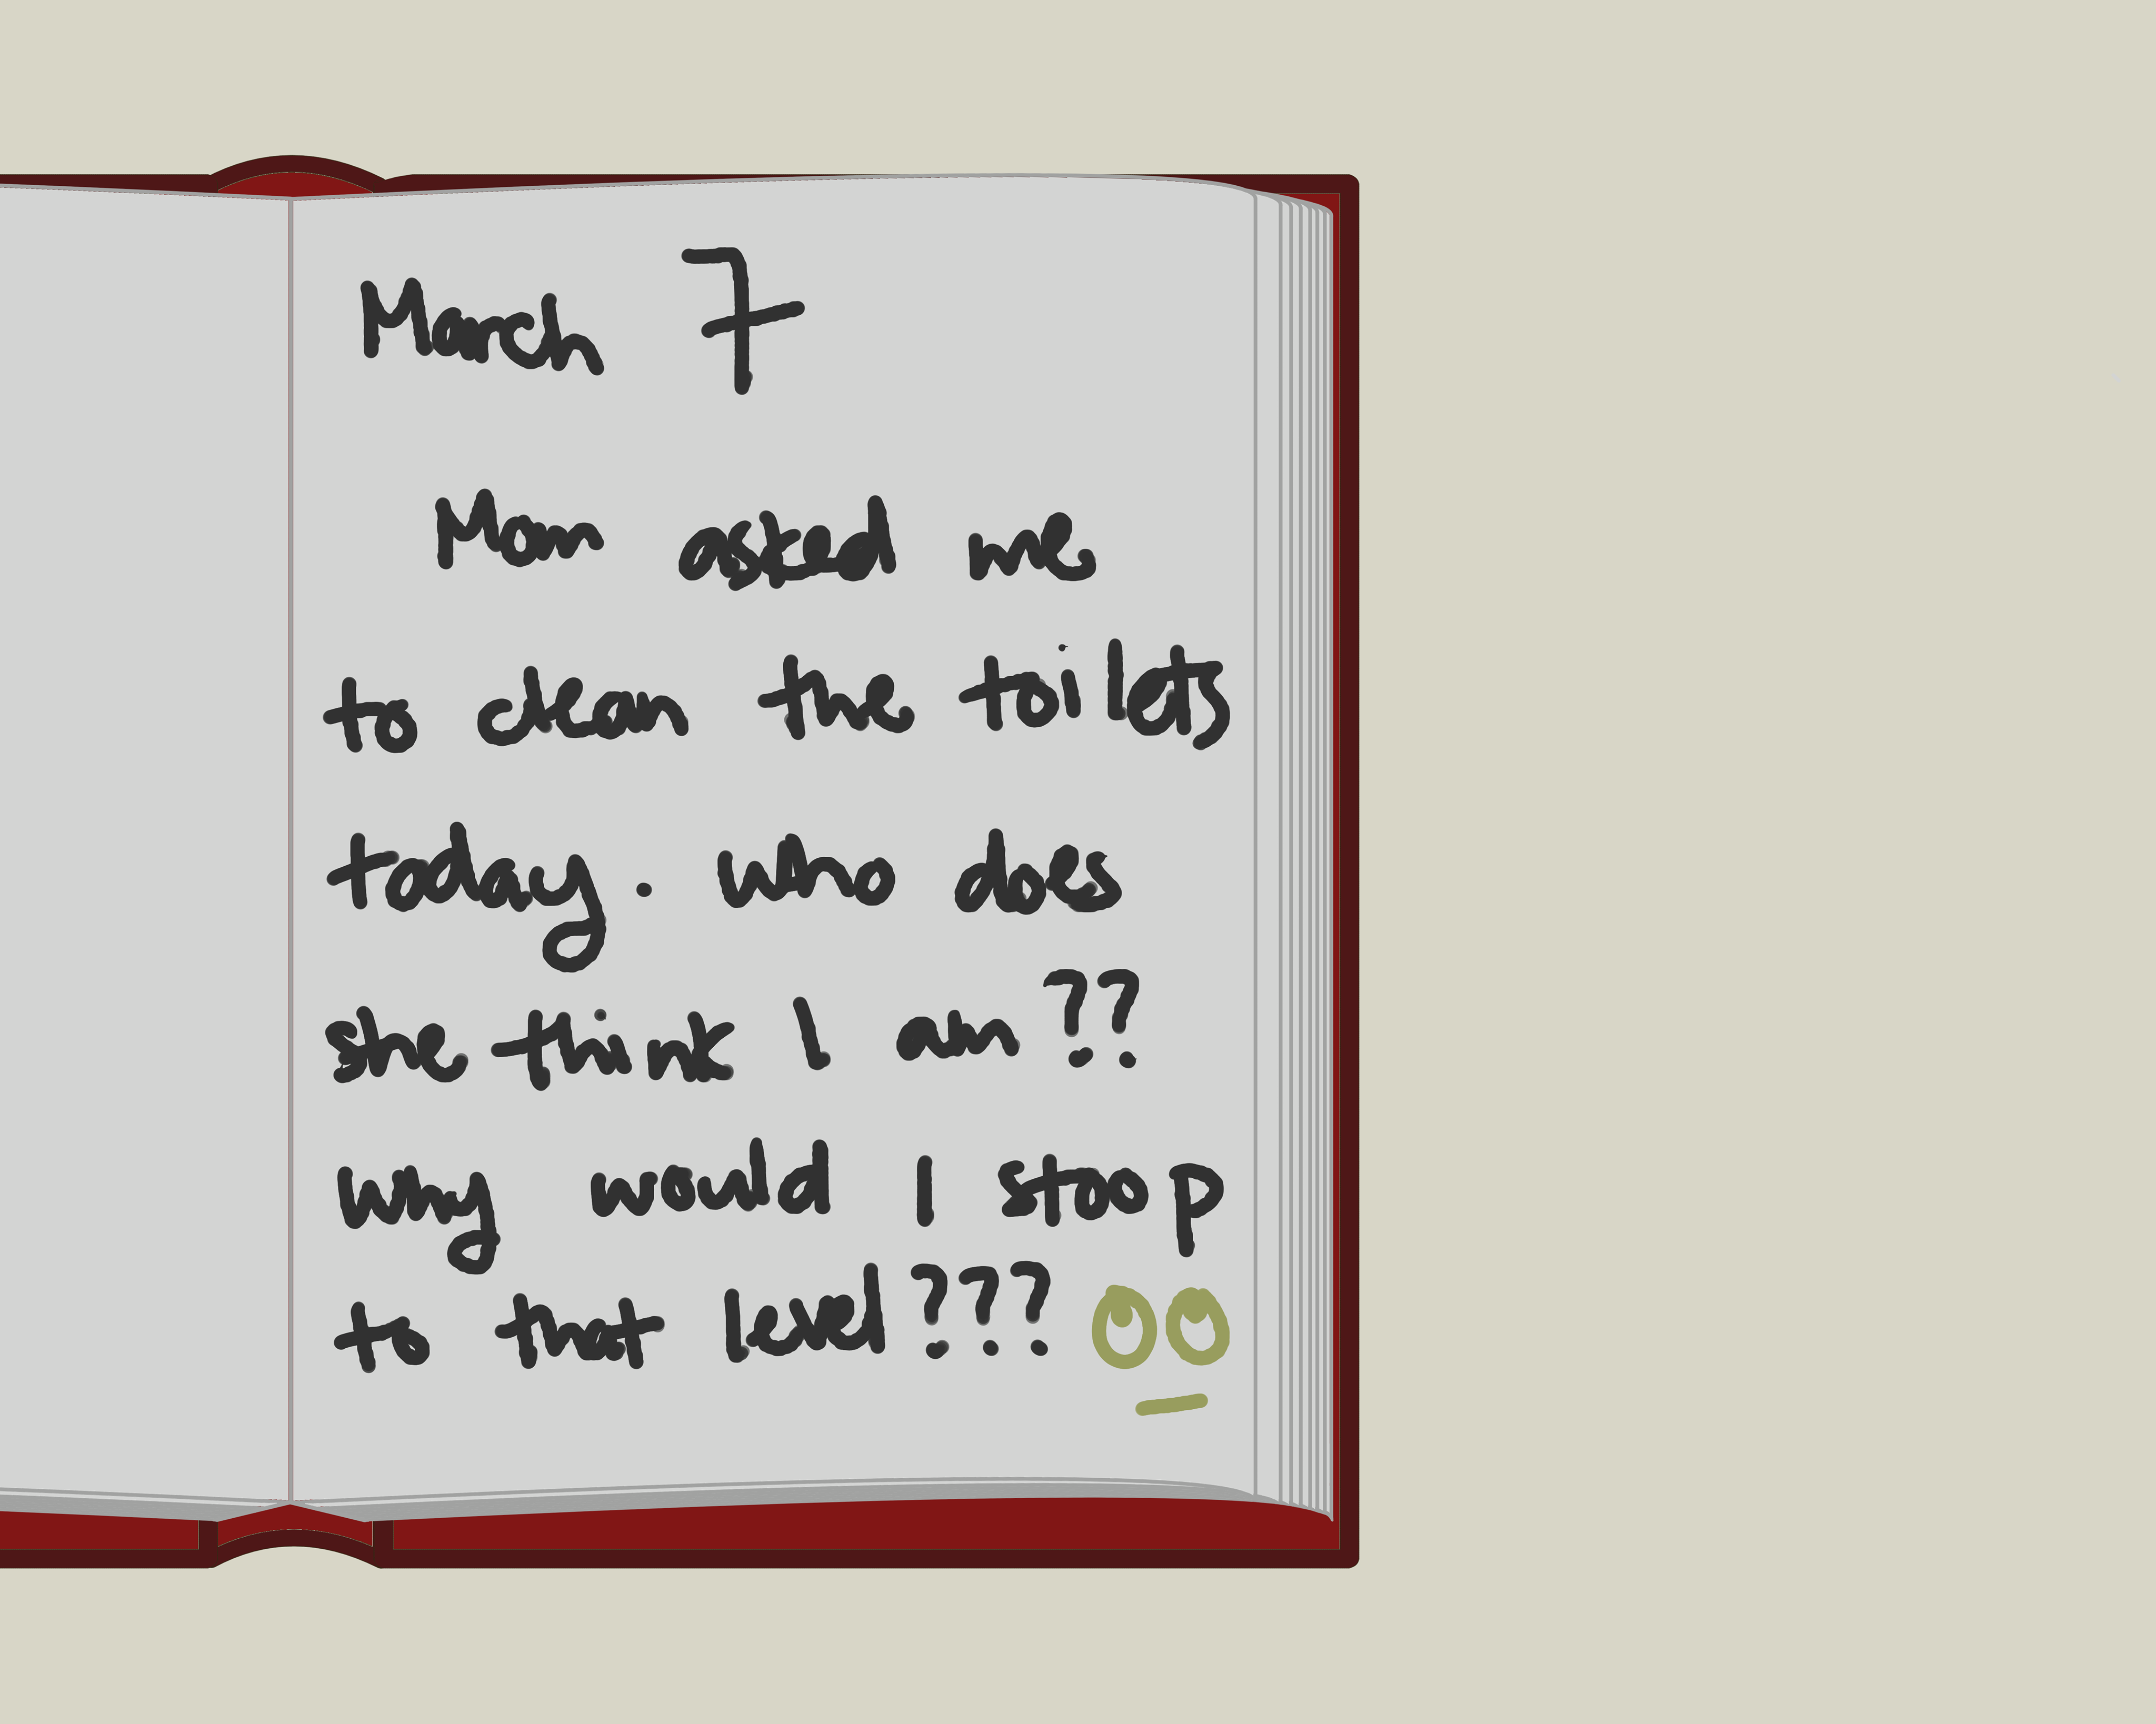 March 7
Mom asked me
to clean the toilets
today. who does
she think I am ??
why would I stoop
to that level ???